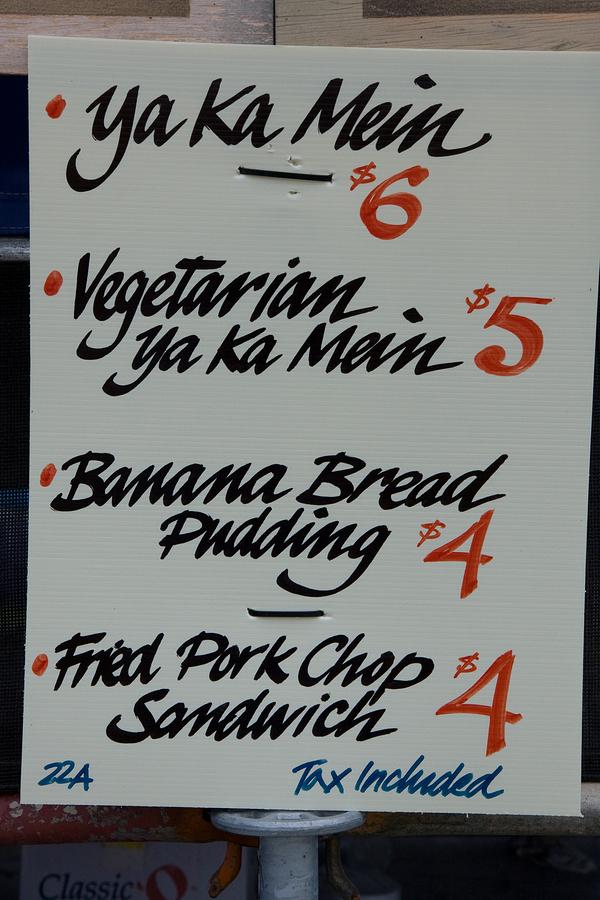 Ya Ka Mein
$6
Vegetarian
Ya Ka Mein $5
Banana Bread
Pudding $4
Fried Pork Chop
Sandwich $4
22A Tax Included
Classic